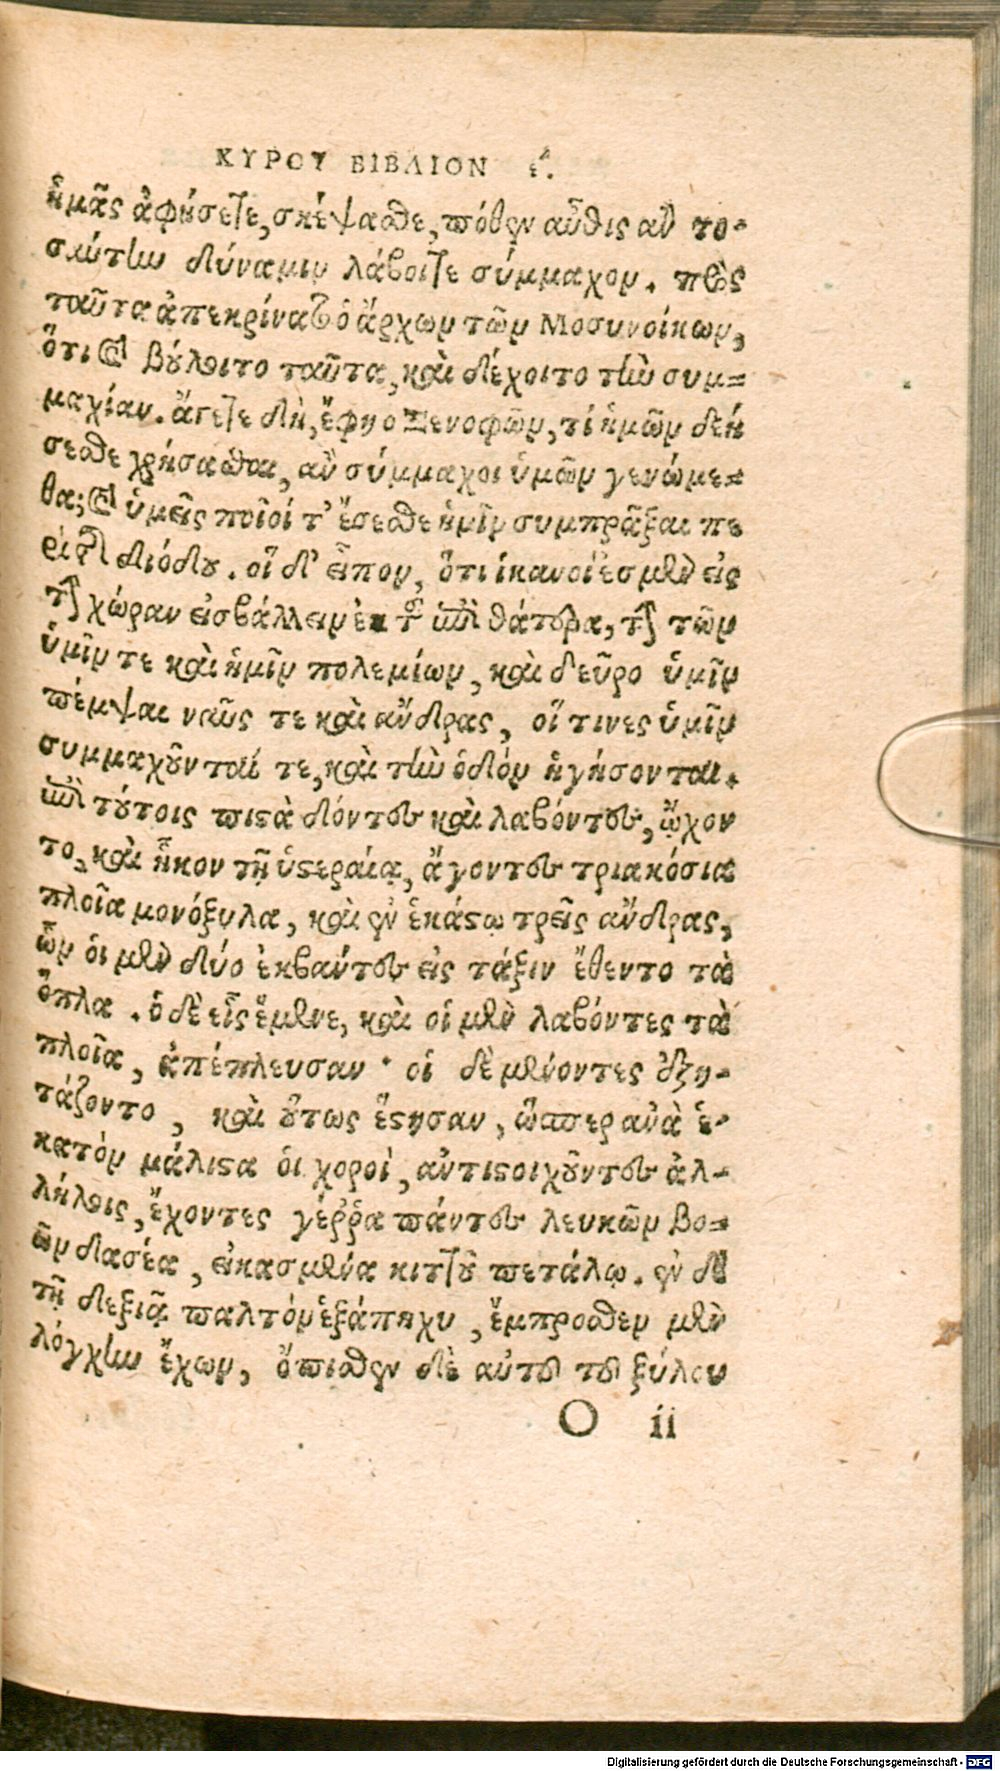 ΚΥΡΟΥ ΒΙΒΛΙΟΝ ε΄.
ἡμᾶς ἀφήσετε, σκέψασθε, πόθεν αὖθις ἂν το-
σαύτην δύναμιν λάβοιτε σύμμαχον. πρὸς
ταῦτα ἀπεκρίνατο ὁ ἄρχων τῶν Μοσυνοίκων,
ὅτι καὶ βούλοιτο ταῦτα, καὶ δέχοιτο τὴν συμ-
μαχίαν. ἄγετε δὴ, ἔφη ὁ Ξενοφῶν, τί ἡμῶν δεή
σεσθε χρήσασθαι, ἂν σύμμαχοι ὑμῶν γενώμε-
θα; καὶ ὑμεῖς ποῖοί τ' ἔσεσθε ἡμῖν συμπρᾶξαι πε
ρὶ τῆς διόδου. οἱ δ' εἶπον, ὅτι ἱκανοί ἐσμὲν εἰς
τὴν χώραν εἰσβάλλειν ἐκ τοῦ ἐπὶ θάτερα, τὴν τῶν
ὑμῖν τε καὶ ἡμῖν πολεμίων, καὶ δεῦρο ὑμῖν
πέμψαι ναῦς τε καὶ ἄνδρας, οἵ τινες ὑμῖν
συμμαχοῦνταί τε, καὶ τὴν ὁδὸν ἡγήσονται.
ἐπὶ τούτοις πιστὰ δόντες καὶ λαβόντες, ᾤχον
το, καὶ ἧκον τῇ ὑστεραίᾳ, ἄγοντες τριακόσια
πλοῖα μονόξυλα, καὶ ἐν ἑκάστῳ τρεῖς ἄνδρας,
ὧν οἱ μὲν δύο ἐκβάντες εἰς τάξιν ἔθεντο τὰ
ὅπλα. ὁ δὲ εἷς ἔμενε, καὶ οἱ μὲν λαβόντες τὰ
πλοῖα, ἀπέπλευσαν· οἱ δὲ μένοντες ἐξη-
τάζοντο, καὶ οὕτως ἔστησαν, ὥσπερ ἀνὰ ἑ-
κατὸν μάλιστα οἱ χοροὶ, ἀντιστοιχοῦντες ἀλ-
λήλοις, ἔχοντες γέρρα πάντες λευκῶν βο-
ῶν δασέα, εἰκασμένα κιττοῦ πετάλῳ. ἐν δὲ
τῇ δεξιᾷ παλτὸν ἑξάπηχυ, ἔμπροσθεν μὲν
λόγχην ἔχων, ὄπισθεν δὲ αὐτοῦ τοῦ ξύλου
O ii
Digitalisierung gefördert durch die Deutsche Forschungsgemeinschaft - DFG